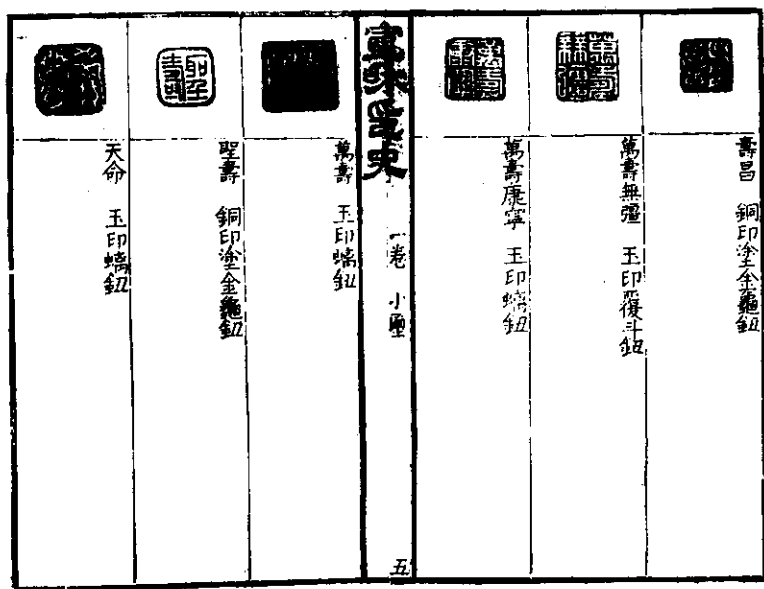 壽昌　銅印塗金龜鈕
萬壽無疆
萬壽無疆　玉印覆斗鈕
萬壽康寧
萬壽康寧　玉印螭鈕
宣和印史
一卷　小璽
五
萬壽　玉印螭鈕
聖壽
聖壽　銅印塗金龜鈕
天命　玉印螭鈕